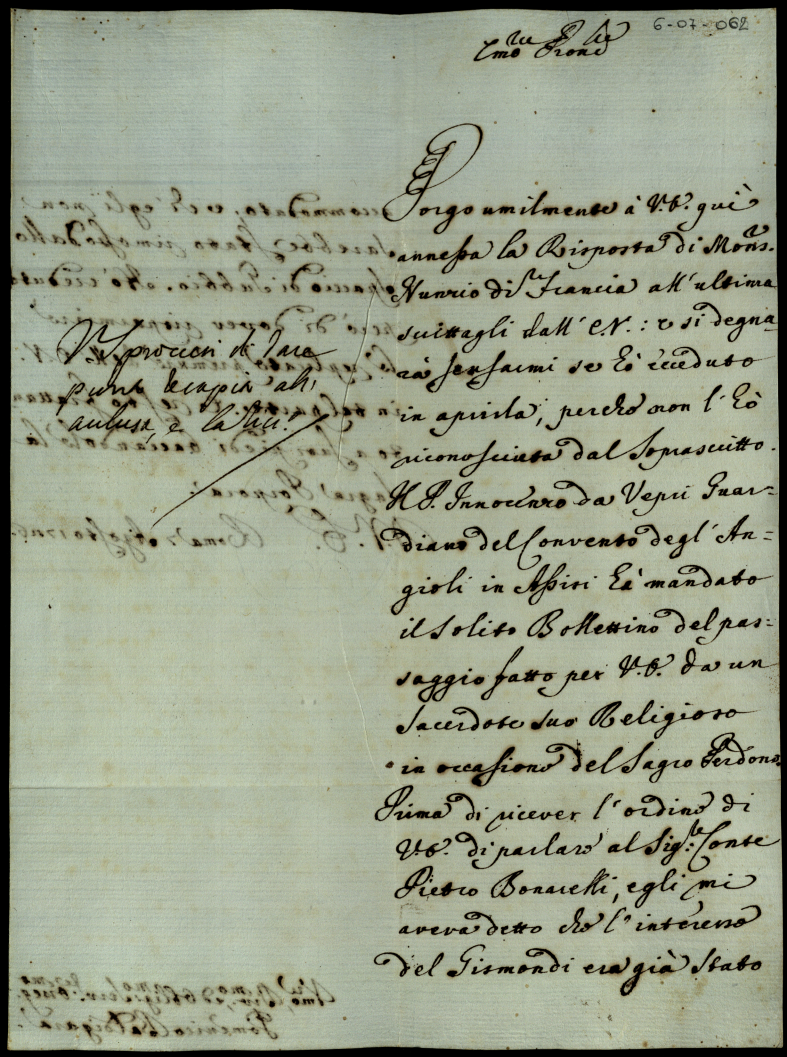 6-07-062
Em̃o Prone
Porgo umilmente à V.E. quì
annessa la Risposta di Mons.
Nunzio di Francia all'ultima
scrittagli dall'E.V.: e si degna-
rà scusarmi se hò ecceduto
in aprirla, perche non l'hò
riconosciuta dal Soprascritto.
Il P. Innocenzo da Vepri Guar=
diano del Convento degl'An=
gioli in Assisi hà mandato
il solito Bollettino del pas=
saggio fatto per V.E. da un
Sacerdote suo Religioso
in occasione del Sagro Perdono.
Prima di ricever l'ordine di
V.E. di parlare al Sig.r Conte
Pietro Bonarelli, egli mi
aveva detto che l'interesse
del Gismondi era già stato
V.S. procuri di